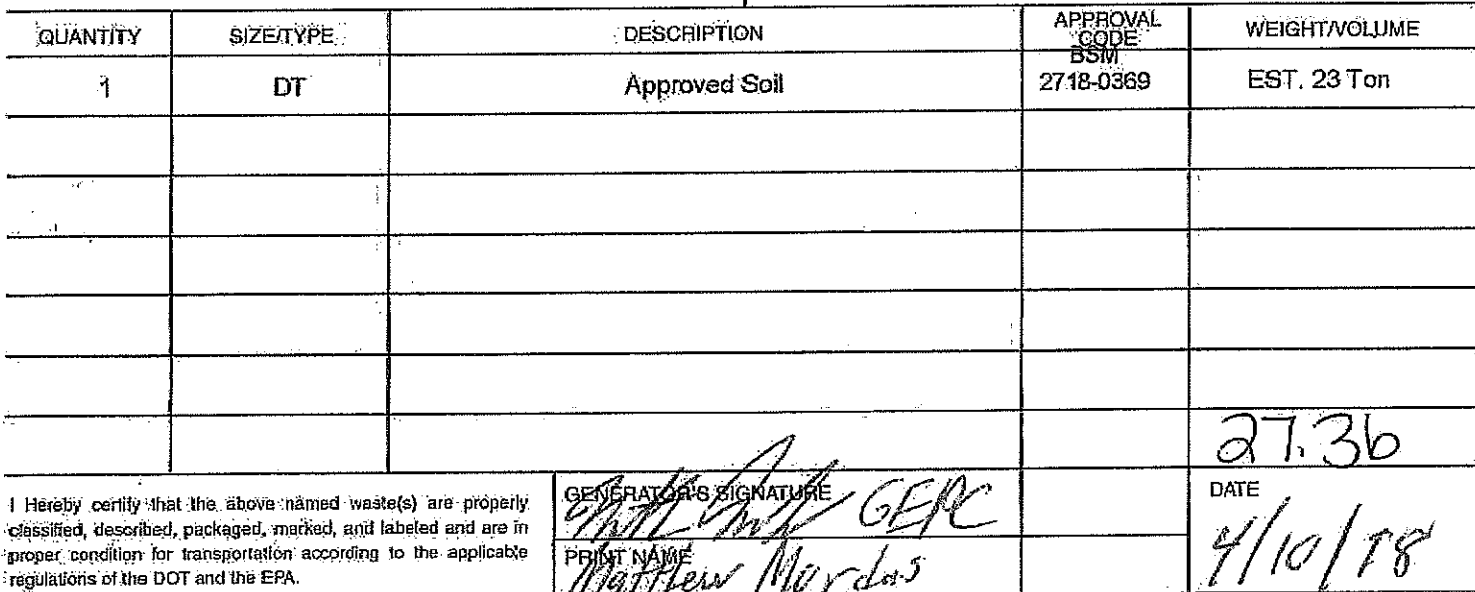 QUANTITY SIZE/TYPE DESCRIPTION APPROVAL CODE WEIGHT/VOLUME
1 DT Approved Soil BSM 2718-0369 EST. 23 Ton
27.36
I Hereby certify that the above named waste(s) are properly
classified, described, packaged, marked, and labeled and are in
proper condition for transportation according to the applicable
regulations of the DOT and the EPA.
GENERATOR'S SIGNATURE
GEPC
PRINT NAME
Matthew Murdas
DATE
4/10/18